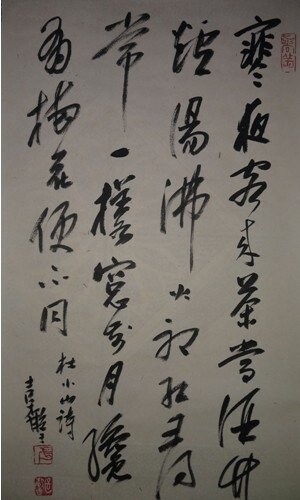 寒夜客來茶當酒竹
爐湯沸火初紅尋
常一樣窗前月纔
有梅花便不同
杜小山詩